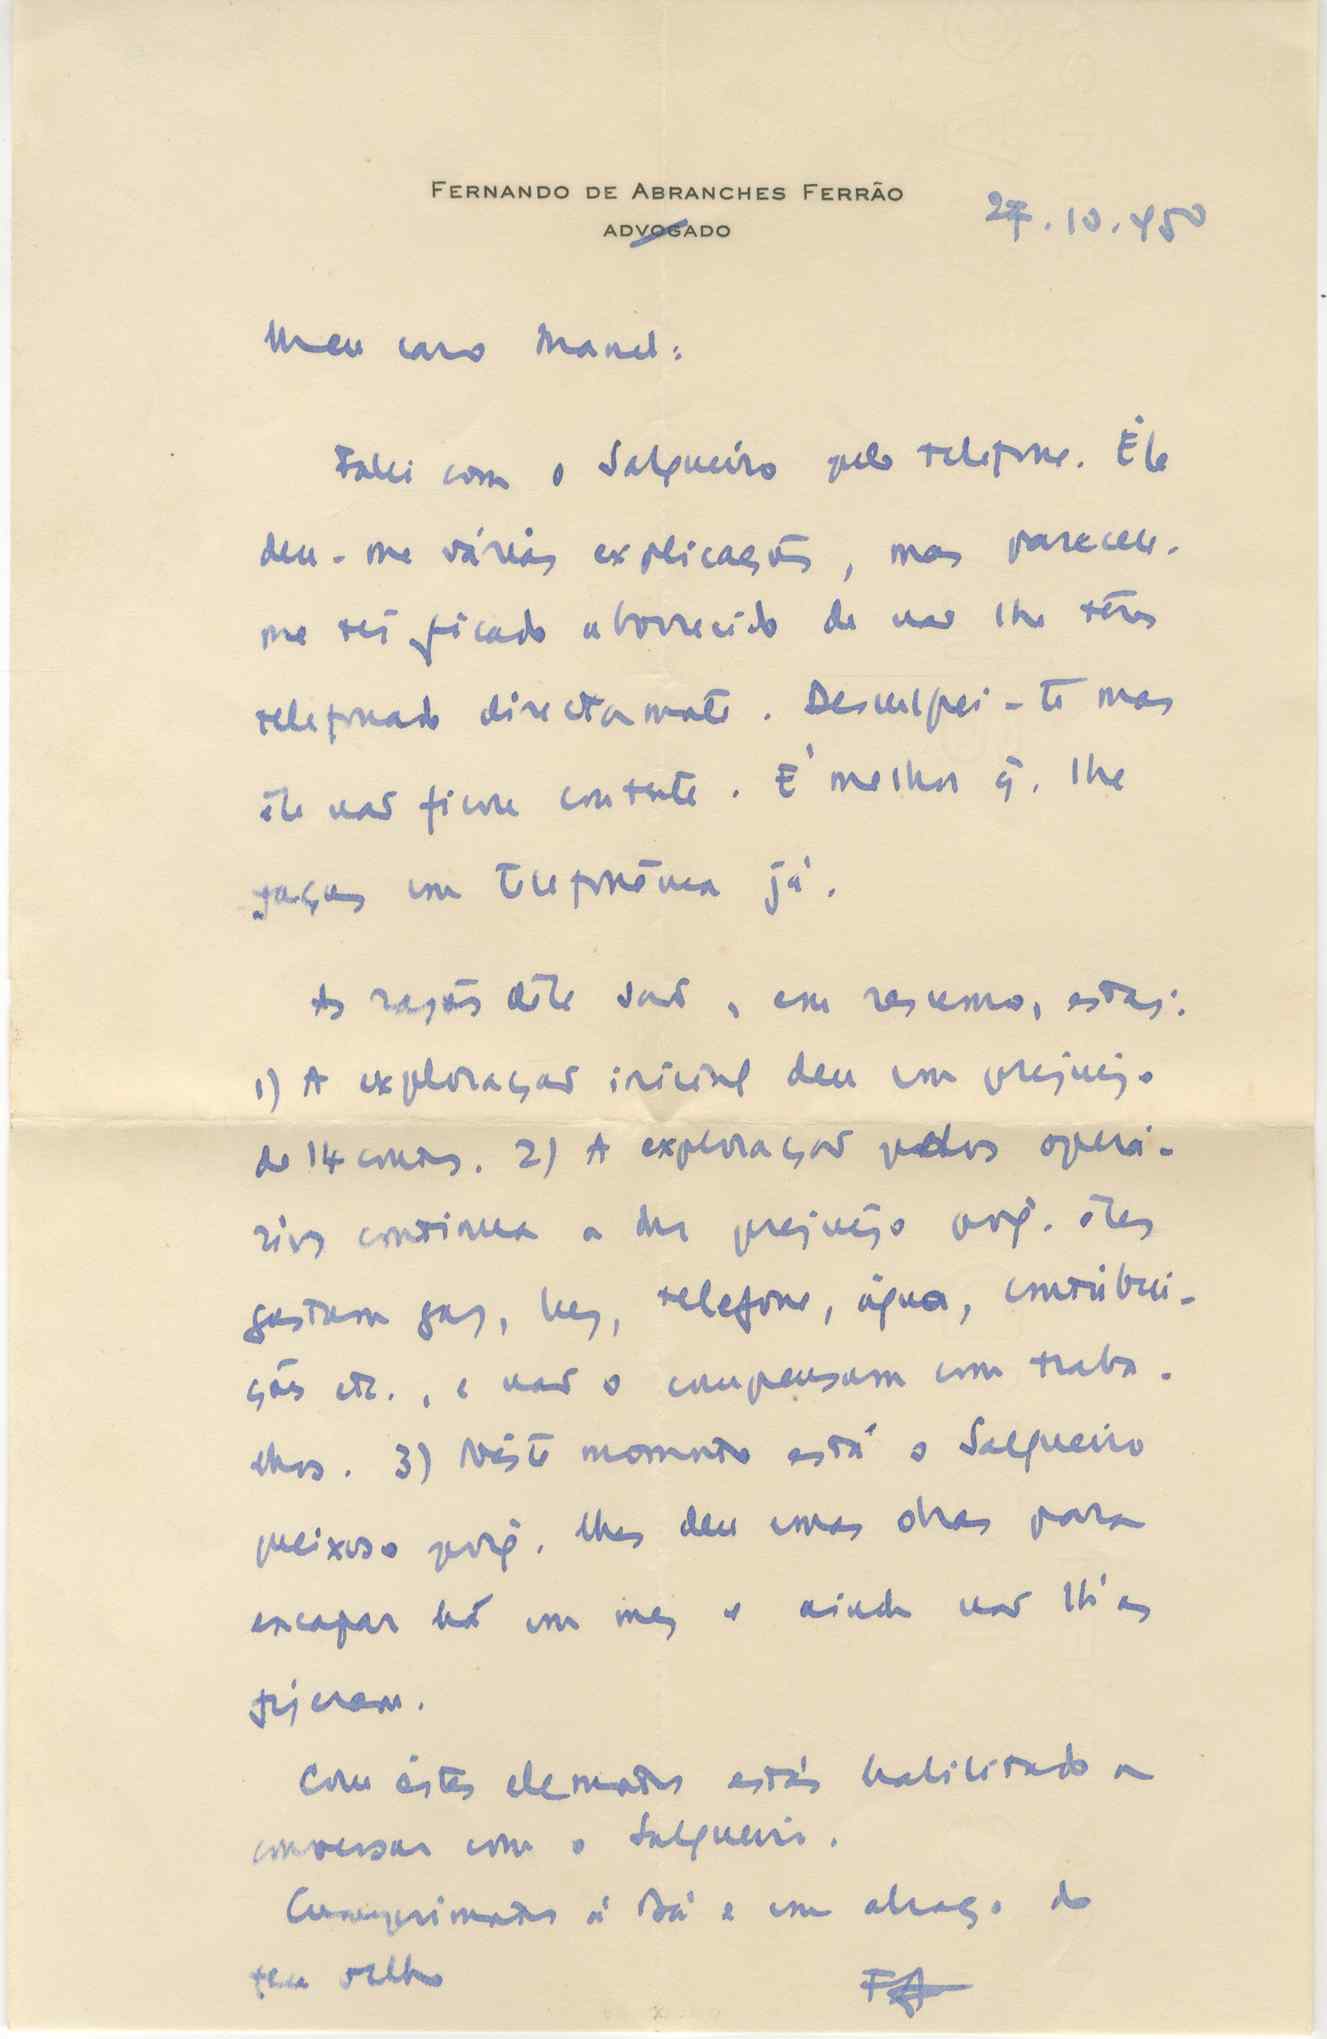 FERNANDO DE ABRANCHES FERRÃO
ADVOGADO
27.10.950
Meu caro Manel:
Falei com o Salgueiro pelo telefone. Êle
deu-me várias explicações, mas pareceu-
me ter ficado aborrecido de não lhe têres
telefonado directamente. Desculpei-te mas
êle não ficou contente. É melhor q. lhe
faças um telefonêma já.
As razões dêle são, em resumo, estas:
1) A exploração inicial deu um prejuízo
de 14 contos. 2) A exploração pelos operá-
rios continua a dar prejuízo porq. êles
gastam gas, luz, telefone, água, contribui-
ções etc., e não o compensam com traba-
lhos. 3) Nêste momento está o Salgueiro
queixoso porq. lhes deu umas obras para
encapar há um mez e ainda não lh'as
fizeram.
Com êstes elementos estás habilitado a
conversar com o Salgueiro.
Cumprimentos à Bá e um abraço do
teu velho
FA